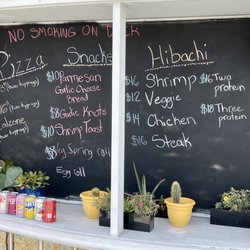 NO SMOKING ON DECK
Pizza
(2 toppings)
(2 toppings)
Calzone
(2 toppings)
Snacks
$10 Parmesan
Garlic Cheese
Bread
$8 Garlic Knots
$10 Shrimp Toast
$8 Veg Spring roll
Egg roll
Hibachi
$16 Shrimp
$12 Veggie
$14 Chicken
$16 Steak
$16 Two
protein
$18 Three
protein